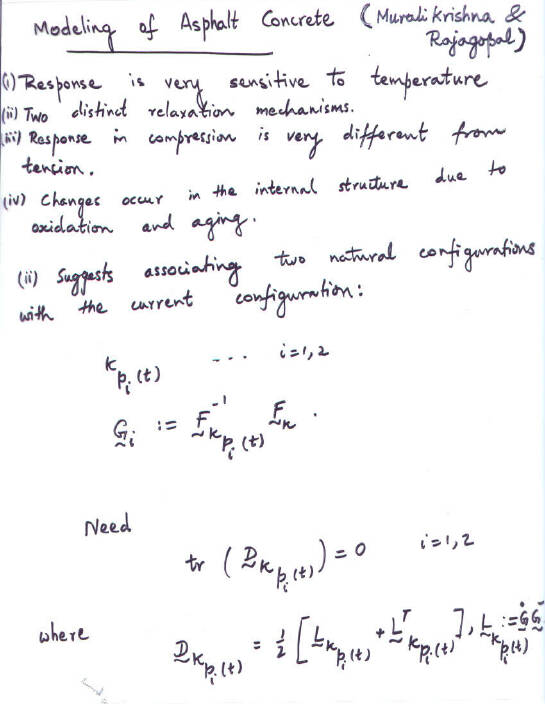 Modeling of Asphalt Concrete (Murali Krishna &
Rajagopal)
(i) Response is very sensitive to temperature
(ii) Two distinct relaxation mechanisms.
(iii) Response in compression is very different from
tension.
(iv) Changes occur in the internal structure due to
oxidation and aging.
(ii) Suggests associating two natural configurations
with the current configuration:
κ_{p_i(t)} --- i=1,2
G_i := F^{-1}_{κ_{p_i(t)}} F_κ .
Need
tr (D_{κ_{p_i(t)}}) = 0 i=1,2
where D_{κ_{p_i(t)}} = 1/2 [L_{κ_{p_i(t)}} + L^T_{κ_{p_i(t)}}], L_{κ_{p_i(t)}} := Ġ G^-